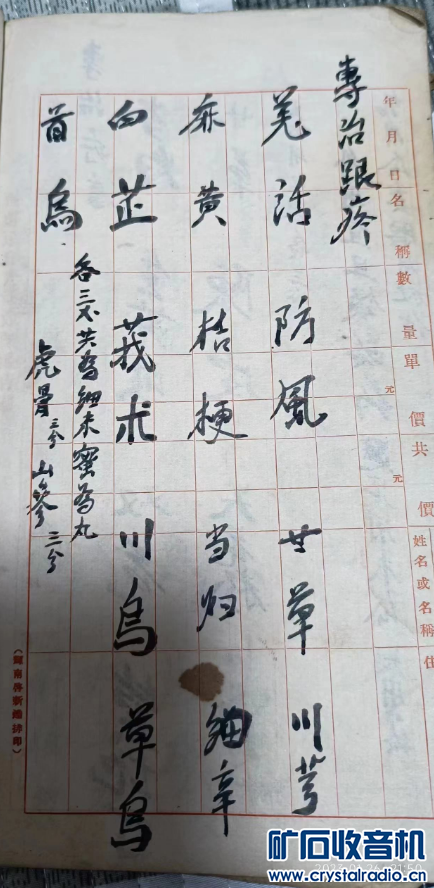 專治跟疼
羌活 防風 甘草 川芎
麻黄 桔梗 当归 细辛
白芷 莪术 川烏 草烏
首烏
各三不共为细末蜜为丸
虎骨三分 山參三分
年月日名稱數量單價共價姓名或名稱住
元 元
矿石收音机
www.crystalradio.cn